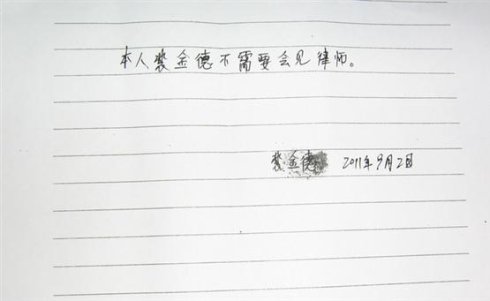 本人裴金德不需要会见律师。
裴金德 2011年9月2日